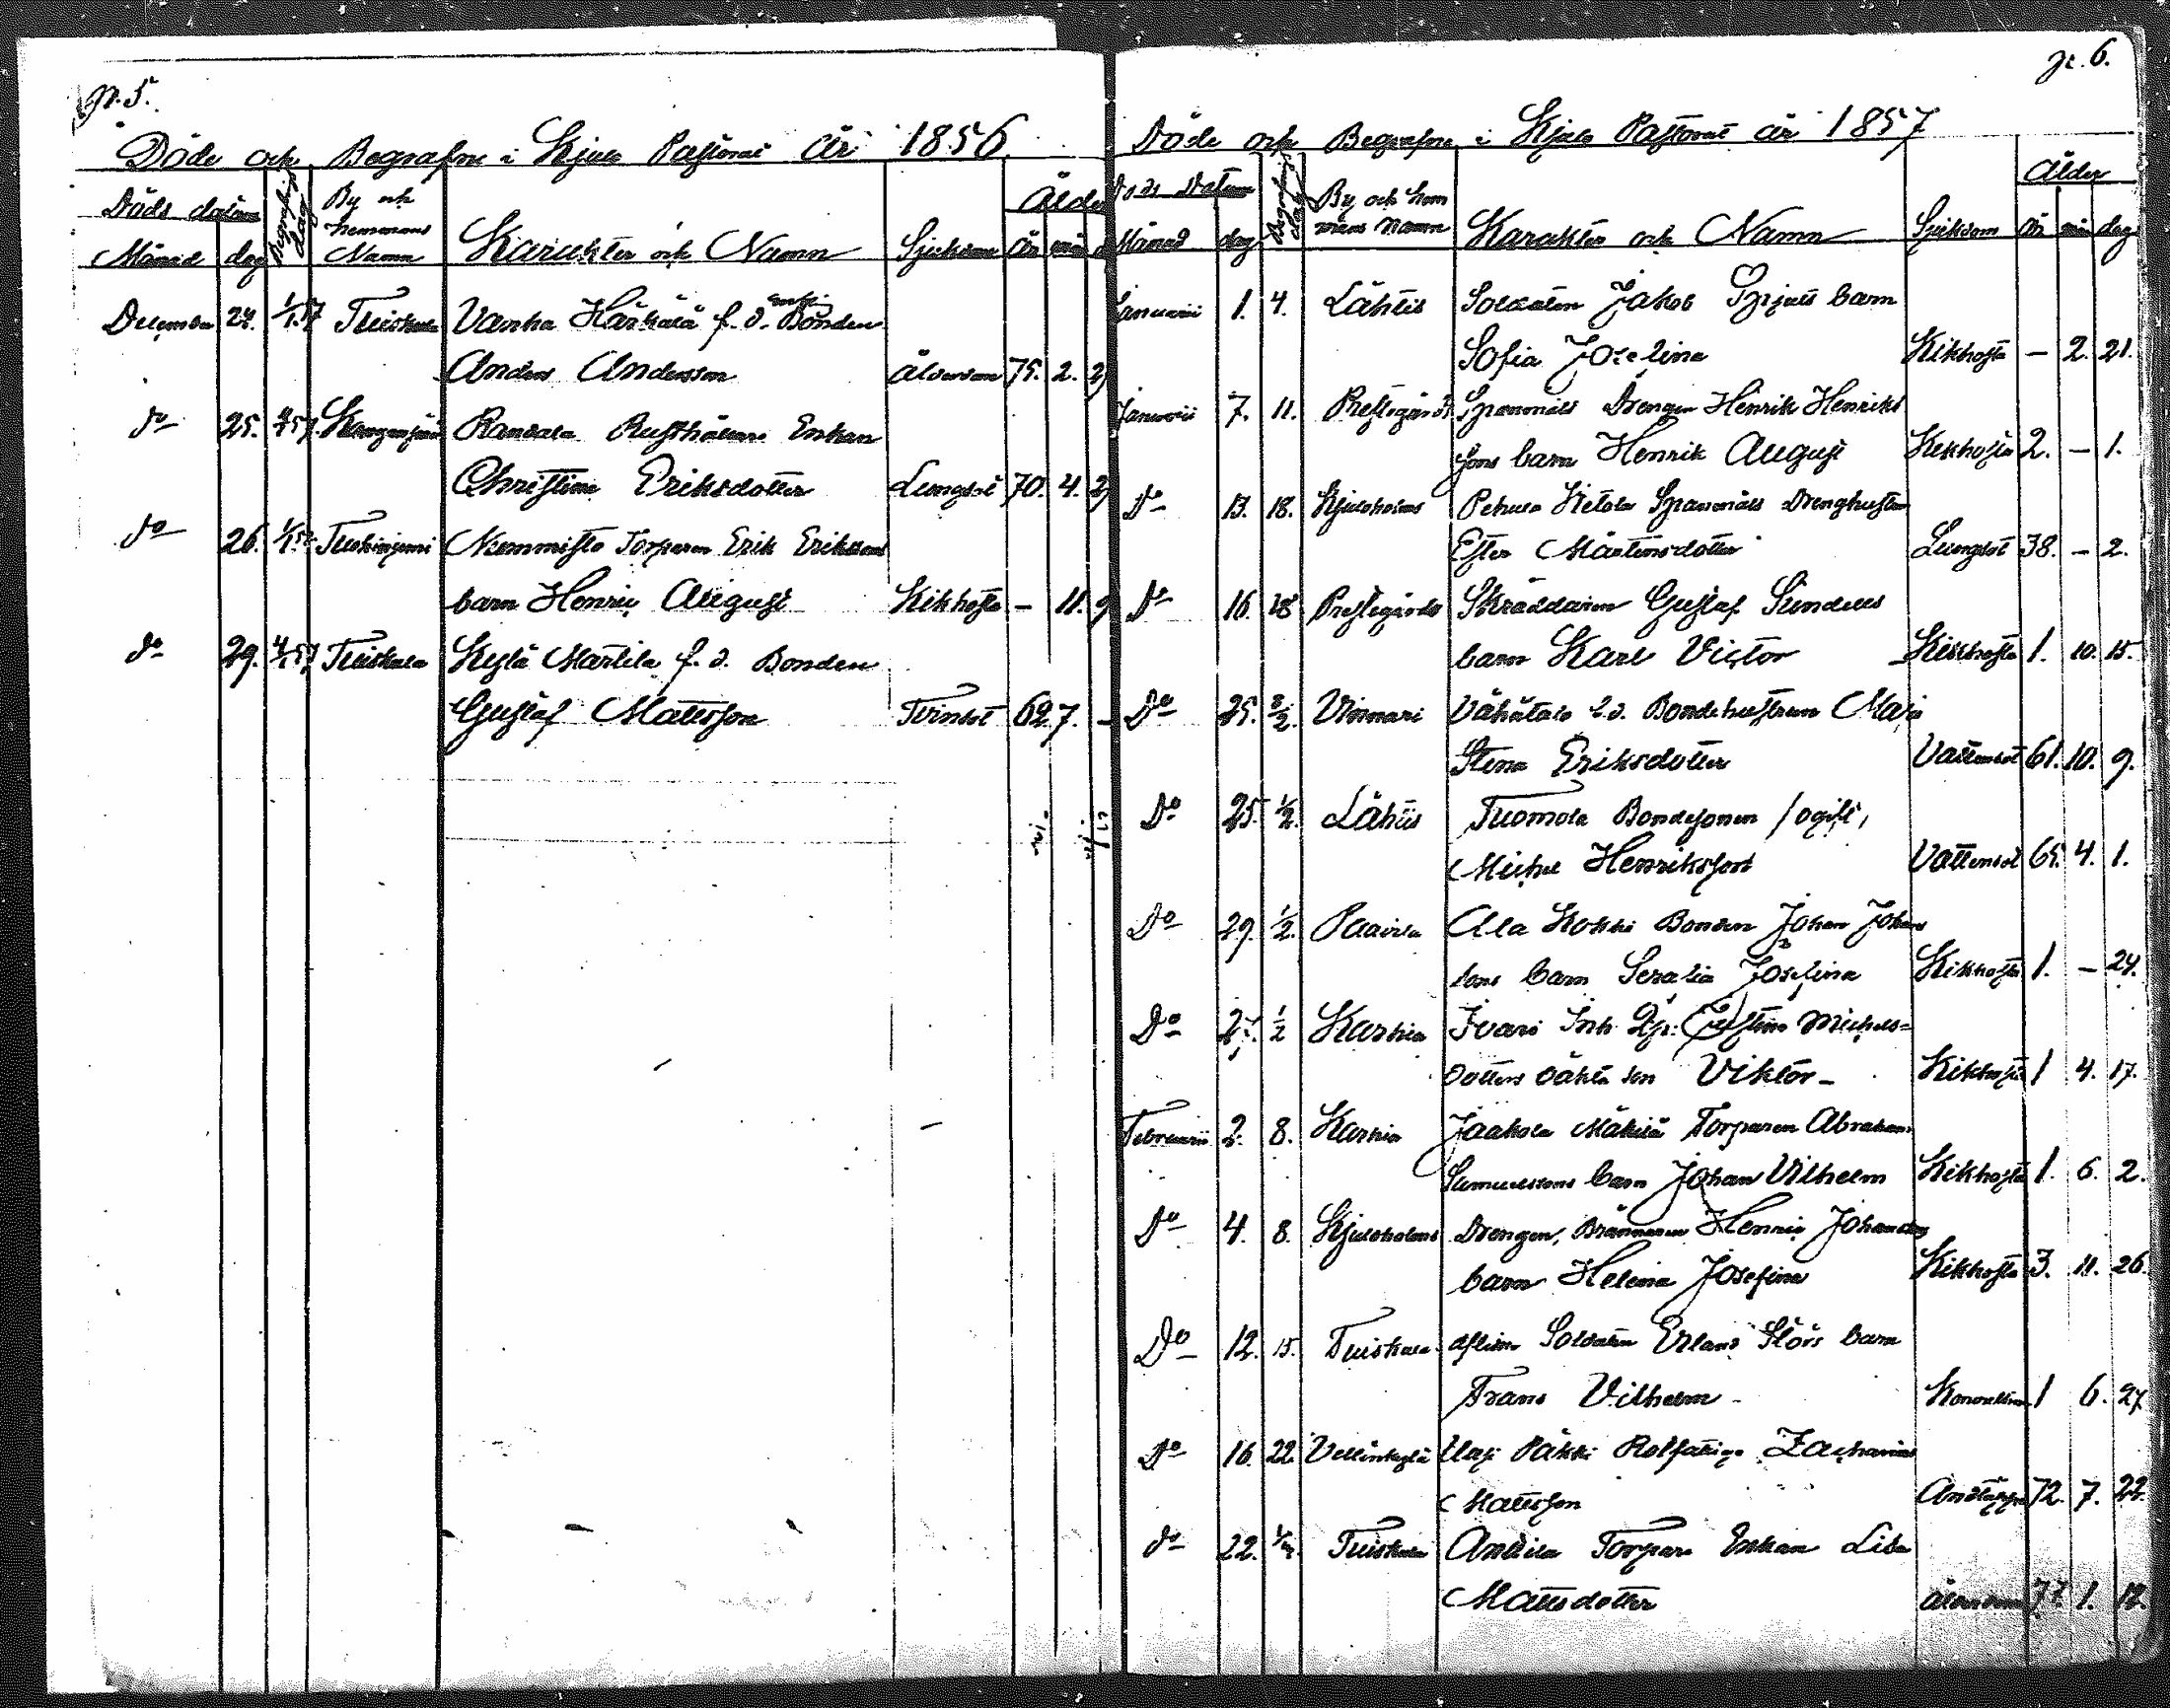 p. 5.
Döde och Begrafne i Kjulo Pastorat År 1856
Döds datum Begrafnings dag By och hemmans Namn Karakter och Namn Sjukdom Ålder
Månad dag år mån
December 24. 1/1.57 Tuiskula Vanha Härkälä f. d. Bonden
Anders Andersson Ålderdom 75. 2. 2
do 25. 4/1 57. Randala Rusthållare Enkan
Christina Eriksdotter Lungsot 70. 4. 2
do 26. 1/1 57. Nummisto Torparen Erik Erikssons
barn Henric August Kikhosta – 11. 9
do 29. 4/1 57 Tuiskula Kylä Märtila f. d. Bonden
Gustaf Mattsson Tvinsot 62 7. –
p. 6.
Döde och Begrafne i Kjulo Pastorat år 1857
Döds Datum Begrafnings dag By och hem mans Namn Karakter och Namn Sjukdom Ålder
Månad dag år mån dag
Januarii 1. 4. Lähtis Soldaten Jakob barn
Sofia Josefina Kikhosta – 2. 21.
Januarii 7. 11. Prestegårds Spanmåls Drengen Henrik Henriks
sons barn Henrik August Kikhosta 2. – 1.
Do 13. 18. Kjuloholms Spanmåls Drenghustrun
Ester Mårtensdotter Lungsot 38. – 2.
Do 16. 18 Prestegårds Skräddaren Gustaf Sundells
barn Karl Victor Kikhosta 1. 10. 15.
Do 25. 8/2. Vinnari Vähätalo f. d. Bondehustrun Maja
Stina Eriksdotter Vattensot 61. 10. 9.
Do 25. 1/2. Lähtis Tuomola Bondesonen /ogift,
Michel Henriksson Vattensot 65. 4. 1.
Do 29. 1/2. Paavila Ala Kokki Bonden Johan Johans
sons barn Serafia Josefina Kikhosta 1. – 24.
Do 1/2 Karhia Ivari Inh. Michels=
dotters oäkta son Viktor – Kikhosta 1 4. 17.
Februarii 2. 8. Karhia Jaakola Mäkilä Torparen Abraham
Samuelssons barn Johan Vilhelm Kikhosta 1. 6. 2.
Do 4. 8. Kjuloholms Drengen, Brännaren Henric Johanssons
barn Helena Josefina Kikhosta 3. 11. 26.
Do 12. 15. Tuiskula aflidne Soldaten Erland Störs barn
Frans Vilhelm – 1 6. 27
Do 16. 22. Vellinkylä Päkki Rotfattige Zacharias
Mattsson Andtäppa 72. 7. 22.
do 22. Tuiskula Anttila Torpare Enkan Lisa
Mattsdotter Ålderdom 77. 1. 12.